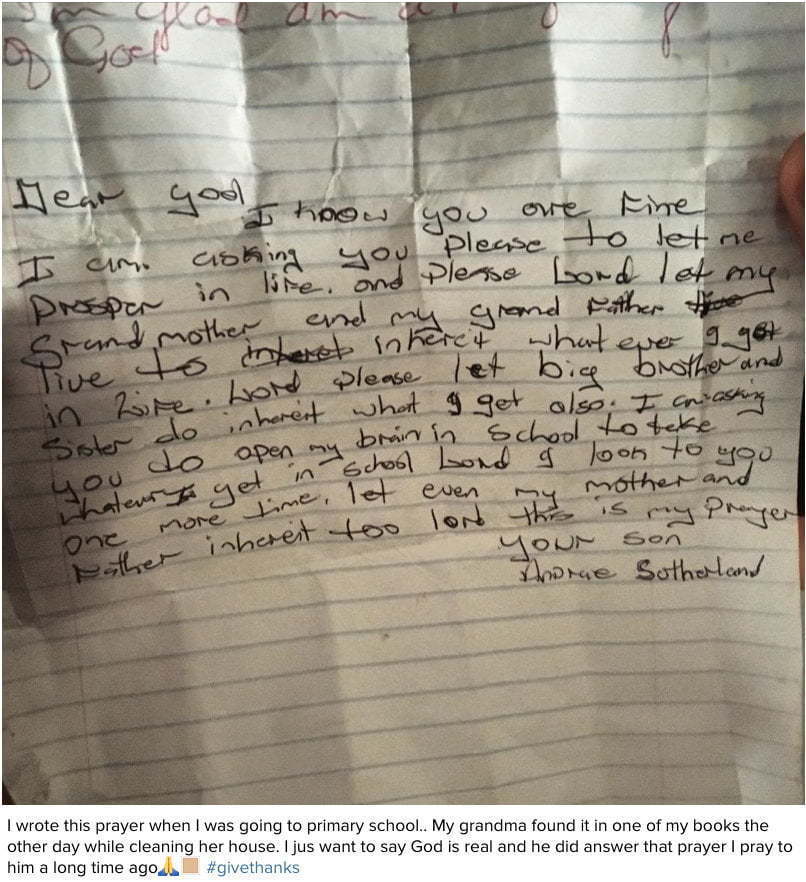 I'm glad am a
of God
Dear god
I know you are Fine
I am. asking you please to let me
Prosper in life. and Please Lord let my
Grandmother and my grand Father
live to inhereit what ever I get
in life. Lord please let big brother and
Sister do inhereit what I get also. I am asking
you do open my brain in school to take
whatever I get in school Lord I look to you
one more time, let even my mother and
Father inhereit too lord this is my Prayer
Your son
Sutherland
I wrote this prayer when I was going to primary school.. My grandma found it in one of my books the
other day while cleaning her house. I jus want to say God is real and he did answer that prayer I pray to
him a long time ago🙏🏽 #givethanks